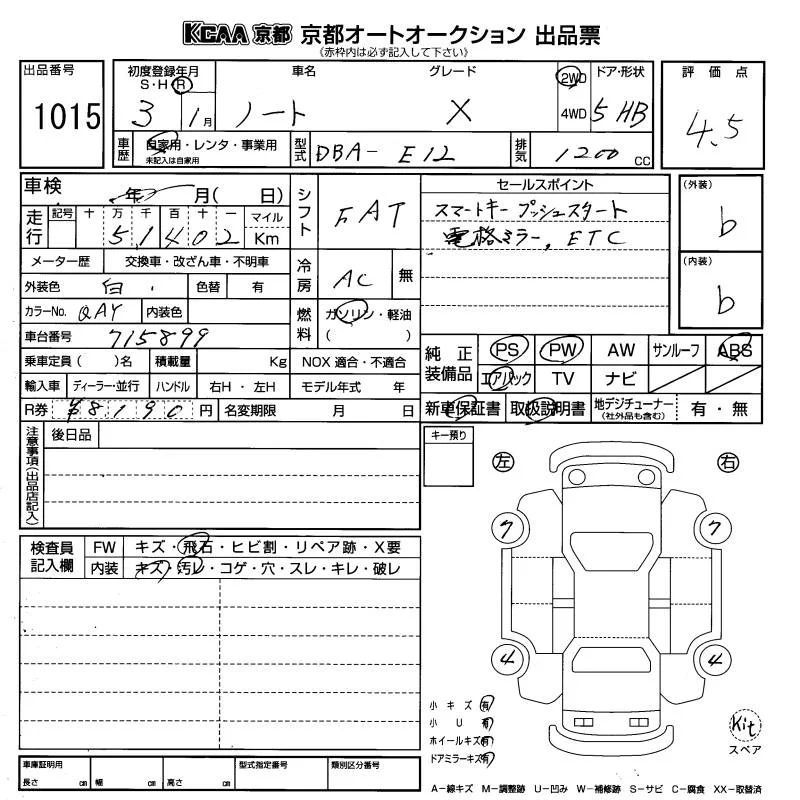 KCAA 京都 京都オートオークション 出品票
《赤枠内は必ず記入して下さい》
出品番号
1015
初度登録年月
S・H・R
3 1月
車名
ノート
グレード
X
2WD
4WD
ドア・形状
5 HB
評価点
4.5
車歴
自家用・レンタ・事業用
未記入は自家用
型式
DBA- E12
排気
1200 CC
車検
年 月( 日)
走行
記号 十 万 千 百 十 一 マイル
5 1 4 0 2 Km
メーター歴 交換車・改ざん車・不明車
外装色 白 色替 有
カラーNo. QAY 内装色
車台番号 715899
乗車定員( )名 積載量 Kg NOX 適合・不適合
輸入車 ディーラー・並行 ハンドル 右H・左H モデル年式 年
R券 ¥8190円 名変期限 月 日
シフト
FAT
冷房
AC 無
燃料
ガソリン・軽油
( )
セールスポイント
スマートキー プッシュスタート
電格ミラー, ETC
(外装)
b
(内装)
b
純正装備品
PS PW AW サンルーフ ABS
エアバック TV ナビ
新車保証書 取扱説明書 地デジチューナー(社外品も含む) 有・無
注意事項(出品店記入)
後日品
キー預り
左
右
7
7
4
4
検査員記入欄
FW キズ・飛石・ヒビ割・リペア跡・X要
内装 キズ・汚レ・コゲ・穴・スレ・キレ・破レ
小キズ 有
小U 有
ホイールキズ 有
ドアミラーキズ 有
Kit
スペア
車庫証明用
長さ cm 幅 cm 高さ cm
型式指定番号
類別区分番号
A−線キズ M−調整跡 U−凹み W−補修跡 S−サビ C−腐食 XX−取替済